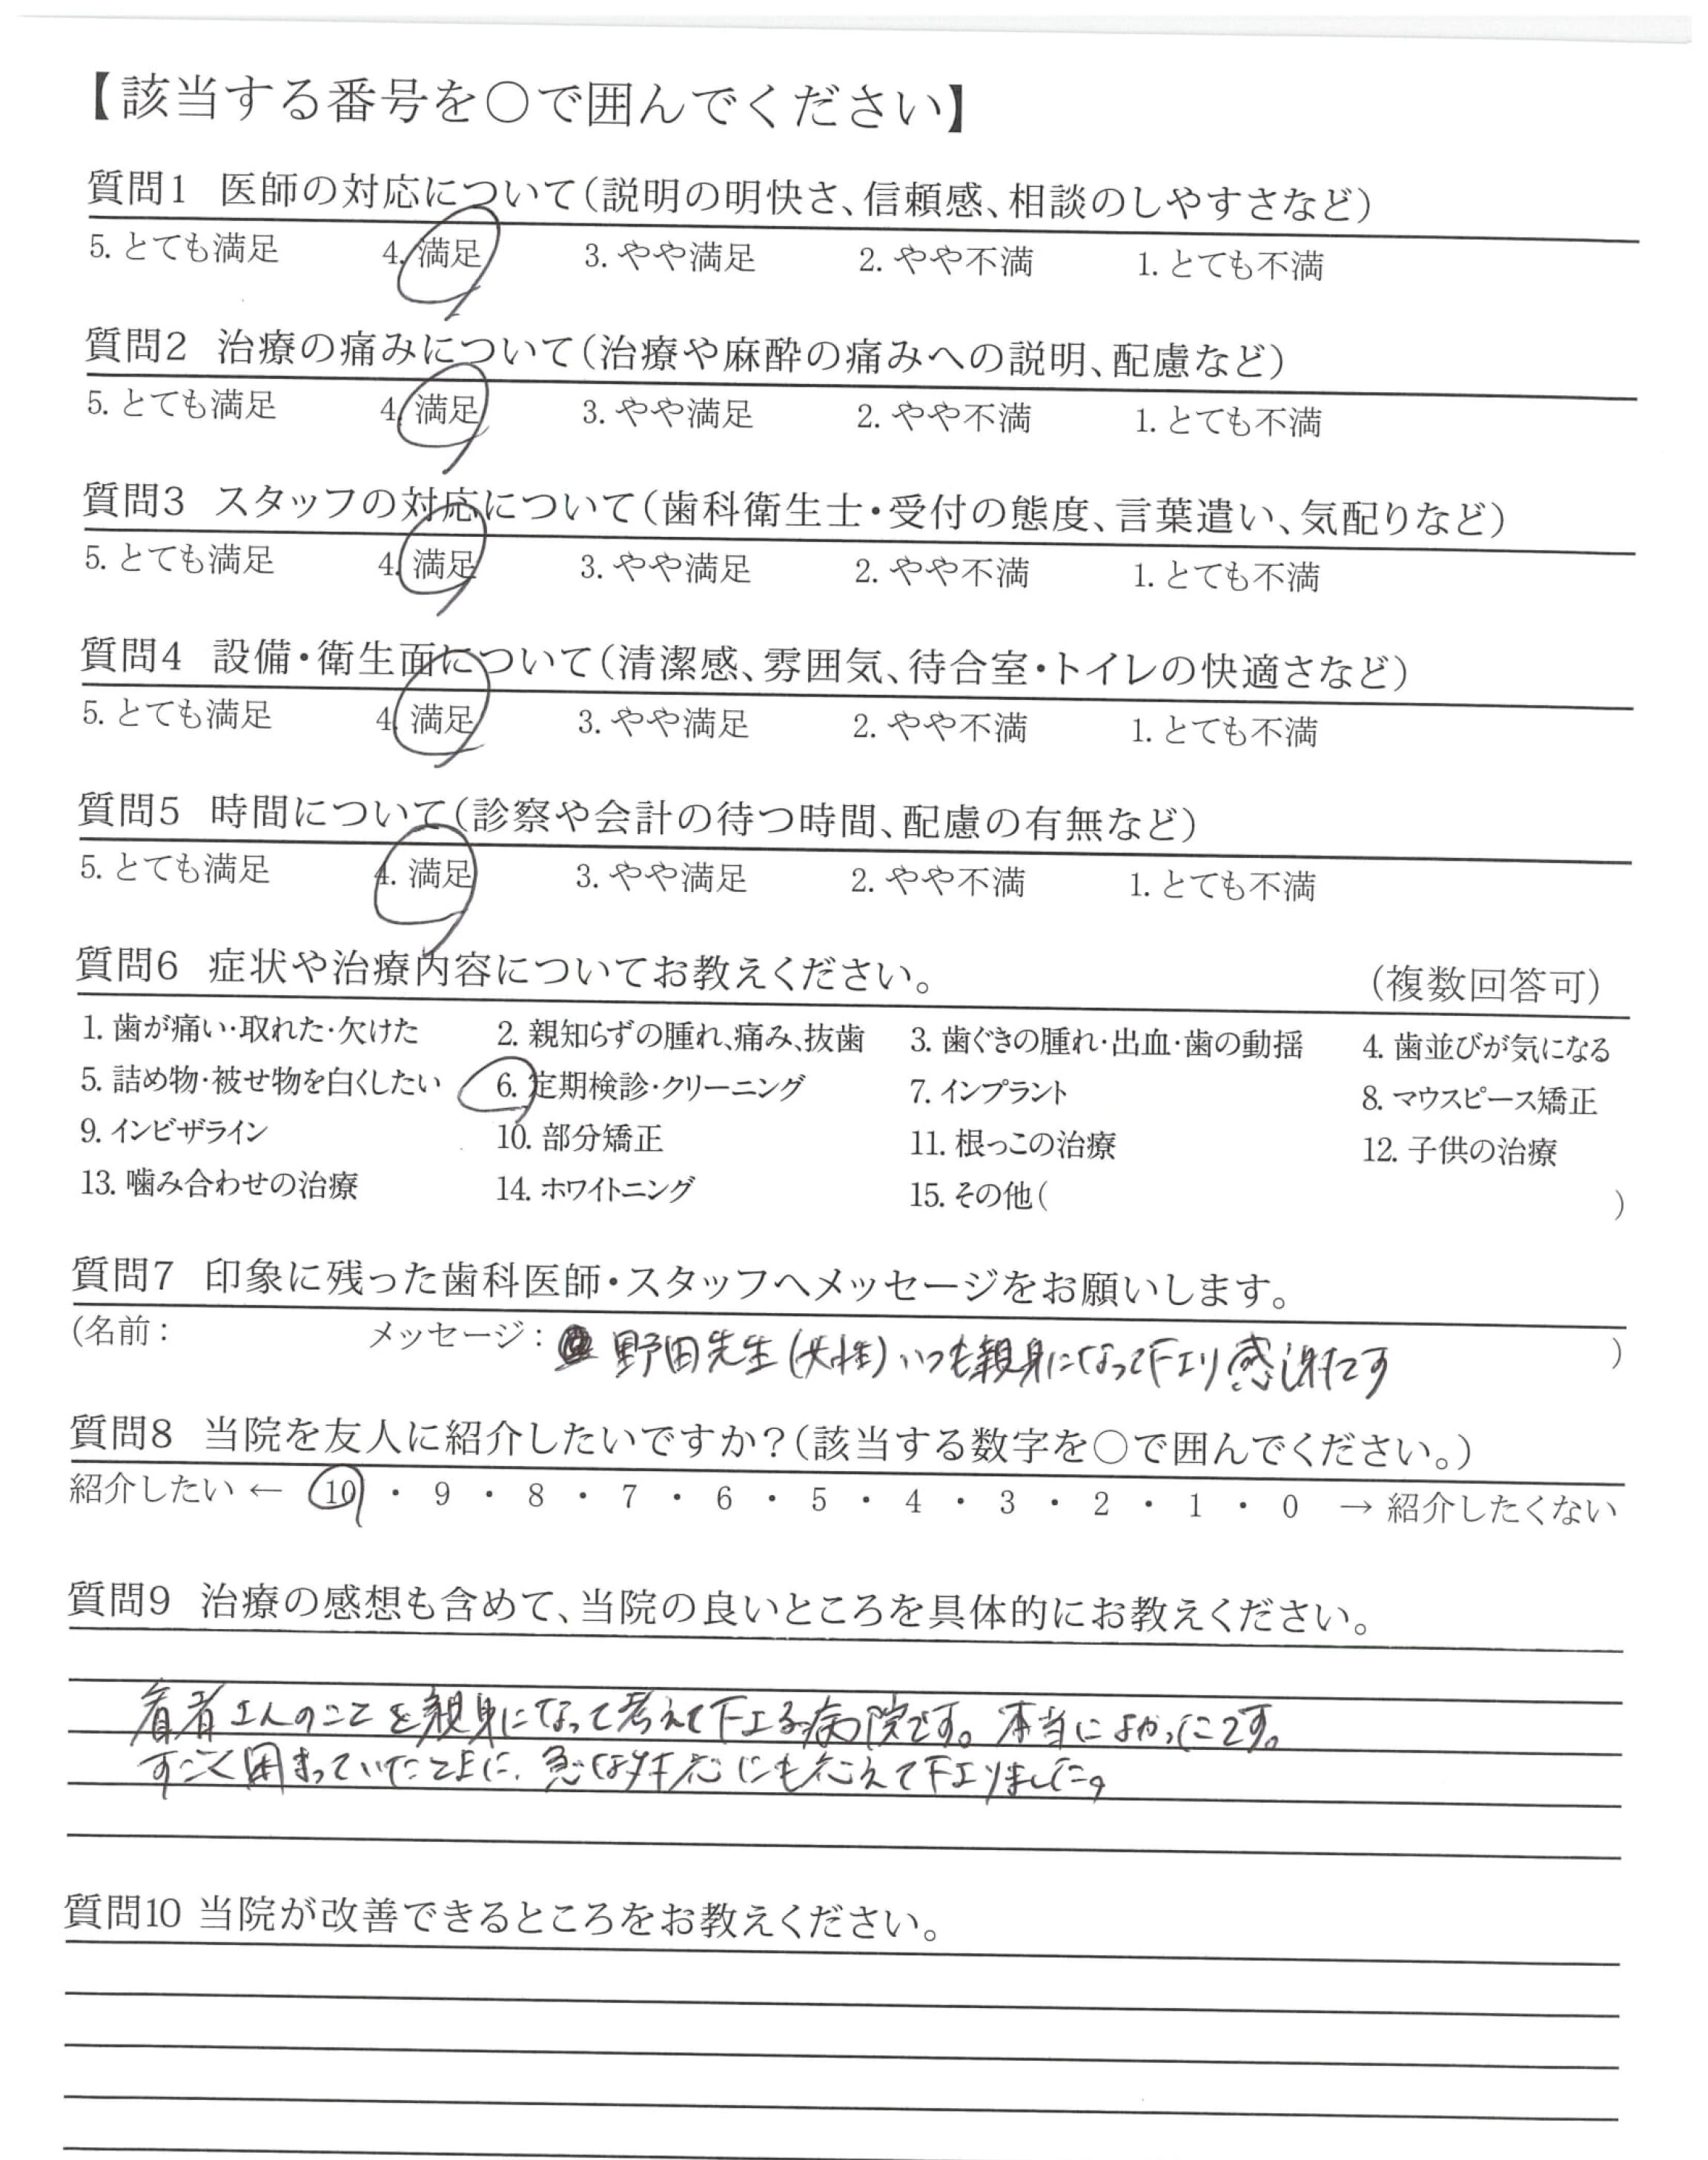 【該当する番号を○で囲んでください】
質問1 医師の対応について(説明の明快さ、信頼感、相談のしやすさなど)
5. とても満足 4. 満足 3. やや満足 2. やや不満 1. とても不満
質問2 治療の痛みについて(治療や麻酔の痛みへの説明、配慮など)
5. とても満足 4. 満足 3. やや満足 2. やや不満 1. とても不満
質問3 スタッフの対応について(歯科衛生士・受付の態度、言葉遣い、気配りなど)
5. とても満足 4. 満足 3. やや満足 2. やや不満 1. とても不満
質問4 設備・衛生面について(清潔感、雰囲気、待合室・トイレの快適さなど)
5. とても満足 4. 満足 3. やや満足 2. やや不満 1. とても不満
質問5 時間について(診察や会計の待つ時間、配慮の有無など)
5. とても満足 4. 満足 3. やや満足 2. やや不満 1. とても不満
質問6 症状や治療内容についてお教えください。 (複数回答可)
1. 歯が痛い・取れた・欠けた 2. 親知らずの腫れ、痛み、抜歯 3. 歯ぐきの腫れ・出血・歯の動揺 4. 歯並びが気になる
5. 詰め物・被せ物を白くしたい 6. 定期検診・クリーニング 7. インプラント 8. マウスピース矯正
9. インビザライン 10. 部分矯正 11. 根っこの治療 12. 子供の治療
13. 噛み合わせの治療 14. ホワイトニング 15. その他( )
質問7 印象に残った歯科医師・スタッフへメッセージをお願いします。
(名前: メッセージ: 野田先生(女性)いつも親身になって下さり感謝です )
質問8 当院を友人に紹介したいですか?(該当する数字を○で囲んでください。)
紹介したい ← 10 ・ 9 ・ 8 ・ 7 ・ 6 ・ 5 ・ 4 ・ 3 ・ 2 ・ 1 ・ 0 → 紹介したくない
質問9 治療の感想も含めて、当院の良いところを具体的にお教えください。
患者さんのことを親身になって考えて下さる病院です。本当によかったです。
すごく困まっていたときに、急な対応にも応えて下さりました。
質問10 当院が改善できるところをお教えください。